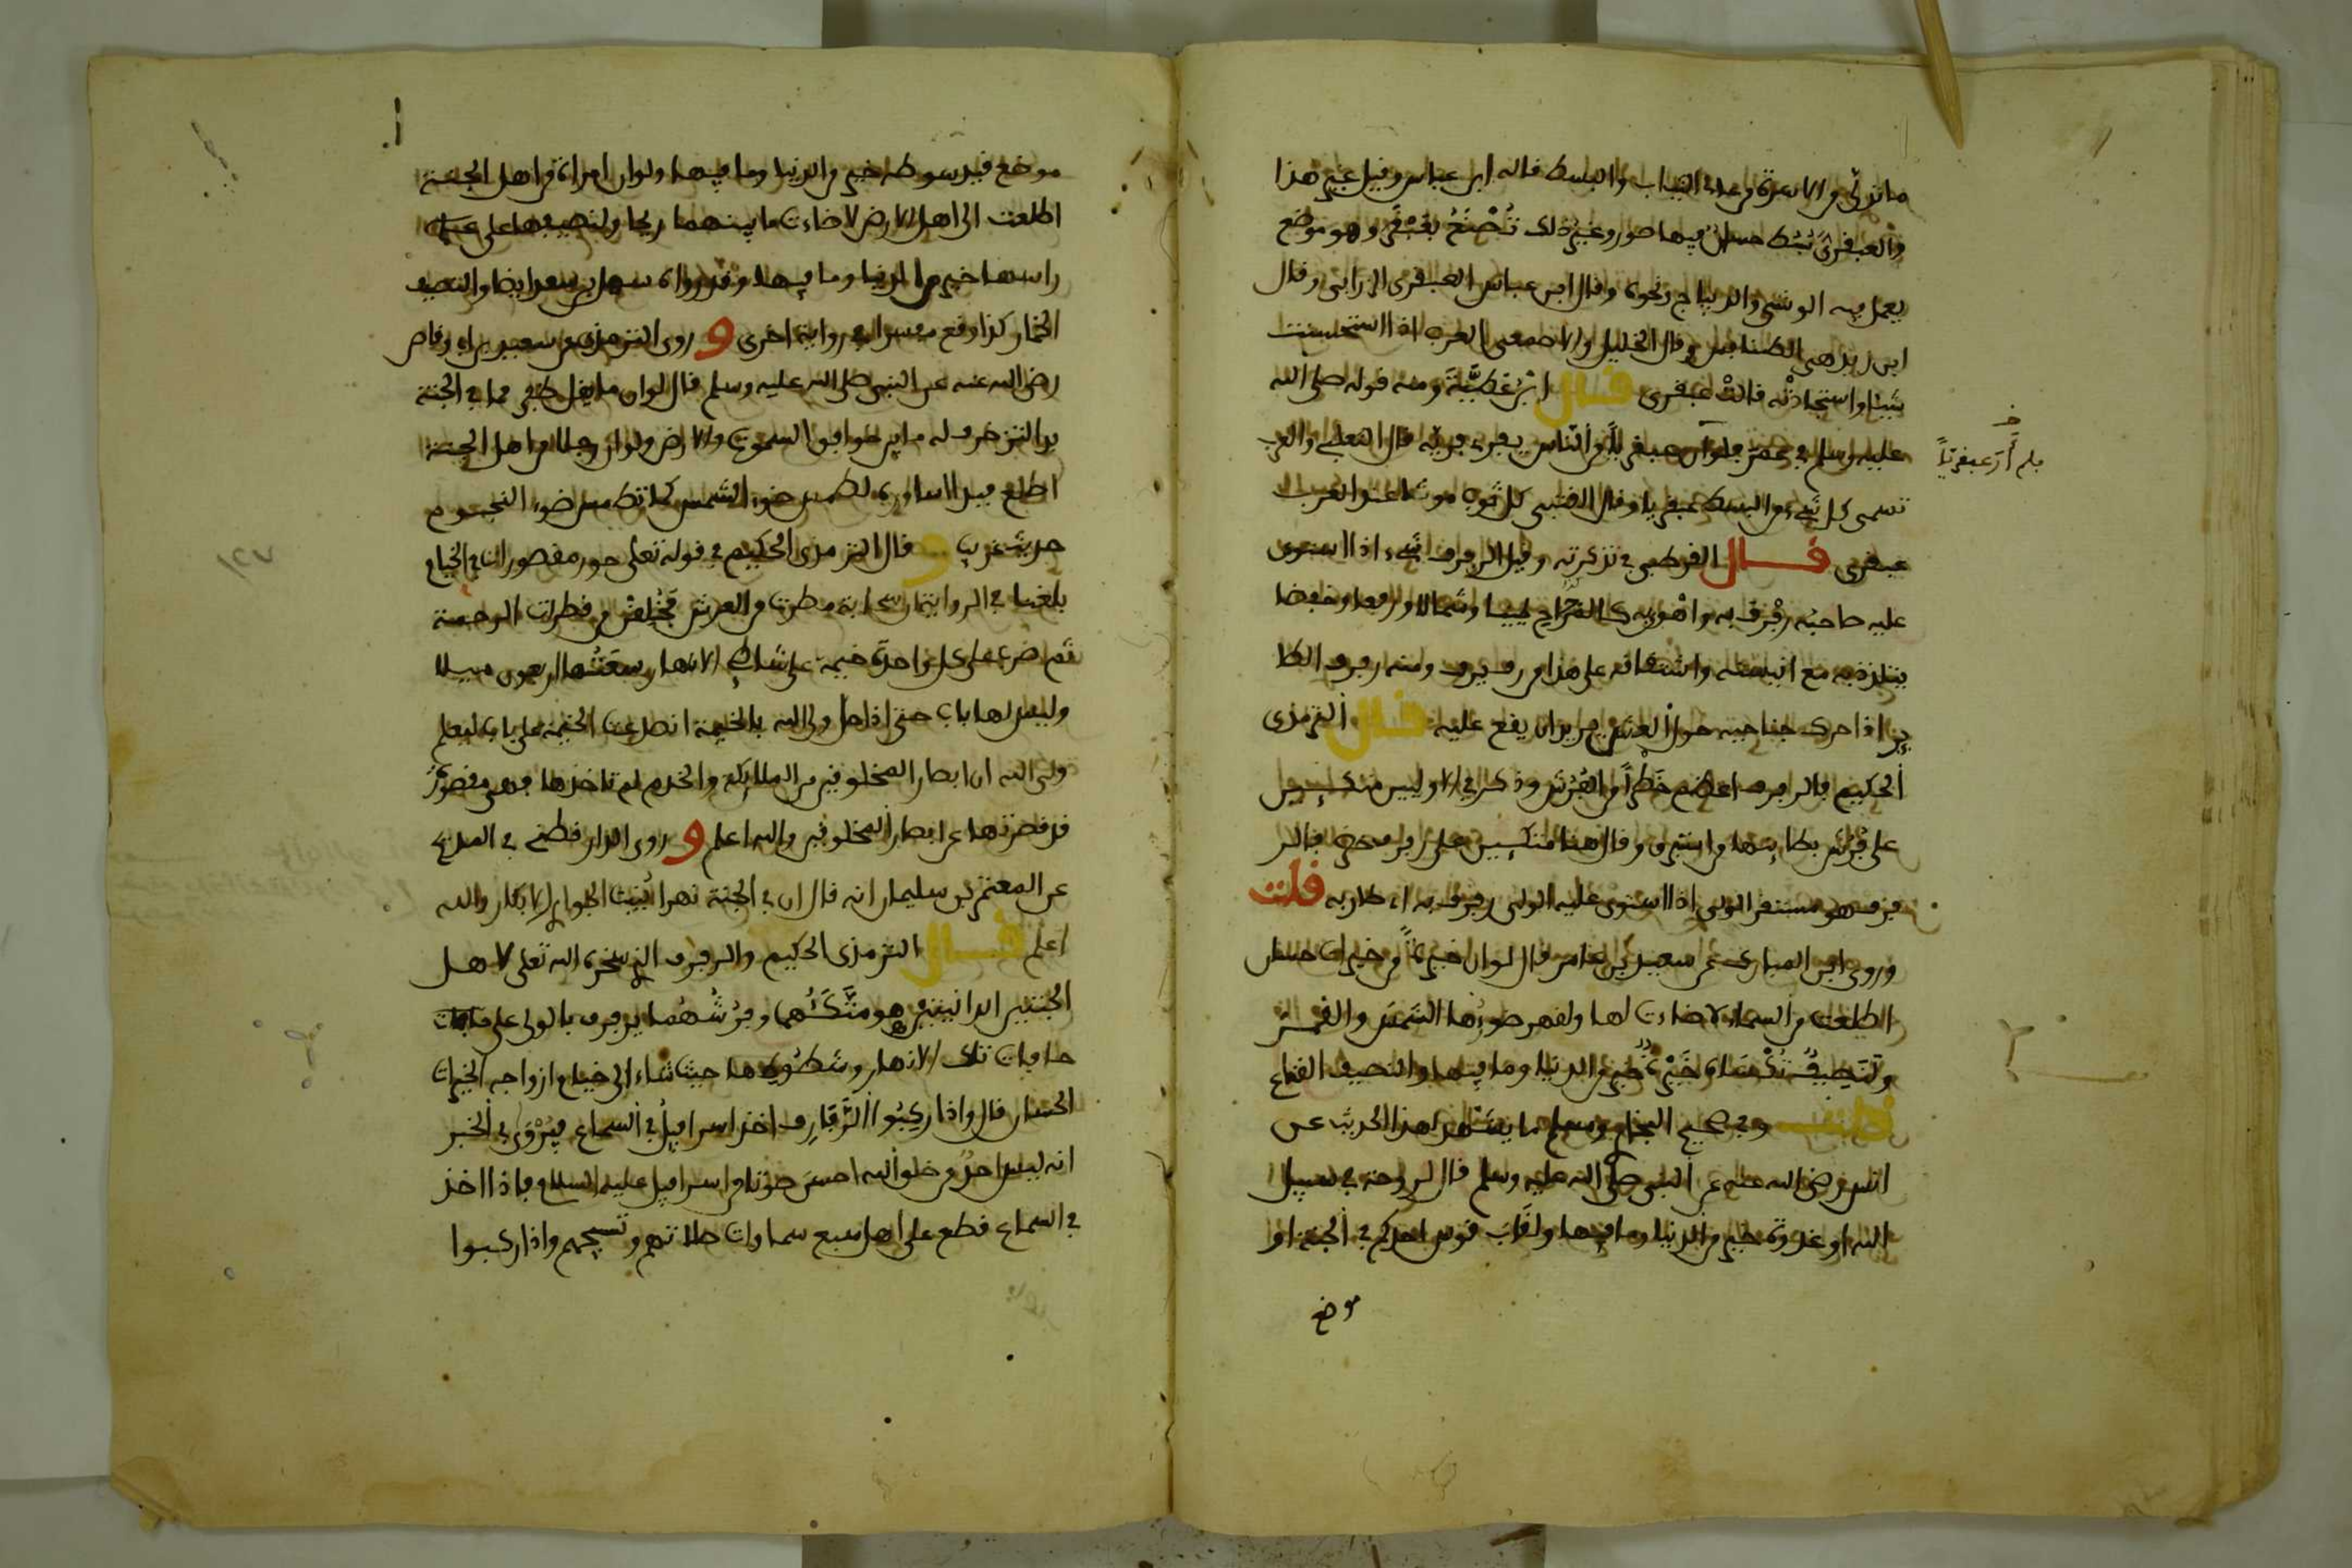 ما تدلى من الاسرة من عالى الثياب والبسط قاله ابن عباس وقيل غير هذا
والعبقرى بُسُط حسان فيها صور وغير ذلك تُصْنَعُ بعَبْقَر وهو موضع
يعمل فيه الوشى والديباج ونحوه وقال ابن عباس العبقرى الزرابى وقال
ابن زيد هى الطنافس وقال الخليل والاصمعى العرب اذا استحسنت
شيئا واستجادتْه قالتْ عبقرى قال ابن عَطِيَّةَ ومنه قوله صلى الله
عليه وسلم فى عمر فلم ار عبقريّاً من الناس يفرى فريّه قال الثعلبى والعرب
فلم أرَ عبقرياً
تسمى كل شىء من البسط عبقريا وقال القتبى كل ثوب موشّا عند العرب
عبقرى قال القرطبى فى تذكرته وقيل الرفرف شىء اذا استوى
عليه صاحبُه رفرف به واهْوى به كالمرجاح يمينا وشمالا ورفعا وخفضا
يتلذذ به مع انيسته واشتقاقه على هذا من رف يرف ومنه رفرف الطا
ير اذا حرك جناحيه حول الشىء يريد ان يقع عليه قال الترمذى
الحكيم فالرفرف اعظم خَطَراً من الفُرُش وذكر فى الاوليين متكئين
على فُرُش بطائنها من استبرق وقال هنا متكئين على رفرف خضر فالر
فرف هو مستقر الولى اذا استوى عليه الولى رفرف به اى طار به قلت
وروى ابن المبارك عن سعيد بن عامر قال لو ان خَيْرةً من خيرات حسان
اطلعت من السماء لاضاءت لها ولقهر ضوءُها الشمسَ والقمر
ولَنَصِيفٌ تُكْسَاهُ خَيْرَةٌ خير من الدنيا وما فيها والنصيف القناع
قلت وفى صحيح البخارى ومسلم ما يشهد لهذا الحديث عن
انس رضى الله عنه عن النبى صلى الله عليه وسلم قال لروحة فى سبيل
الله او غدوة خير من الدنيا وما فيها ولقاب قوس احدكم فى الجنة او
موضع
موضع قيد سوطه خير من الدنيا وما فيها ولو ان امراة من اهل الجنة
اطلعت الى اهل الارض لاضاءت ما بينهما ريحا ولنصيفها على
راسها خير من الدنيا وما فيها وقد رواه سهل بن سعد ايضا والنصيف
الخمار كذا وقع مفسرا فى رواية اخرى و روى الترمذى عن سعد بن ابى وقاص
رضى الله عنه عن النبى صلى الله عليه وسلم قال لو ان ما يقل ظفر مما فى الجنة
بدا لتزخرف له ما بين خوافق السموت والارض ولو ان رجلا من اهل الجنة
اطلع فبدا اساوره لطمس ضوء الشمس كما تطمس ضوء النجوم
حديث غريب و قال الترمذى الحكيم فى قوله تعلى حور مقصورات فى الخيام
بلغنا فى الرواية ان سحابة مطرت من العرش فخُلِقْن من قطرات الرحمة
ثم ضرب على كل واحدة خيمة على شاطئ الانهار سَعَتُها اربعون ميلا
وليس لها باب حتى اذا حل ولى الله بالخيمة انصدعت الخيمة على باب ليعلم
ولى الله ان ابصار المخلوقين من الملايكة والخدم لم تاخذها فهى مقصورة
قد قصرتها عن ابصار المخلوقين والله اعلم و روى الدار قطنى فى المدبج
عن المعتمر بن سليمان انه قال ان فى الجنة نهرا يُنْبِت الجوارى الابكار والله
اعلم قال الترمذى الحكيم والرفرف الذى سخره الله تعلى لاهل
الجنتين الدانيتين هو متّكَئُهما وفرُشُهُما يرفرف بالولى على حافات
حافات تلك الانهار وشطوطها حيث شاء الى خيام ازواجه الخيرات
الحسان قال واذا ركبُوا الرَّفَارِف اخذ اسرافيل فى السماع فيُرْوَى فى الخبر
انه ليس احدٌ من خلق الله احسنَ صوتا من اسرافيل عليه السلام فاذا اخذ
فى السماع قطع على اهل سبع سماوات صلاتهم وتسبيحهم واذا ركبوا
١٢٧